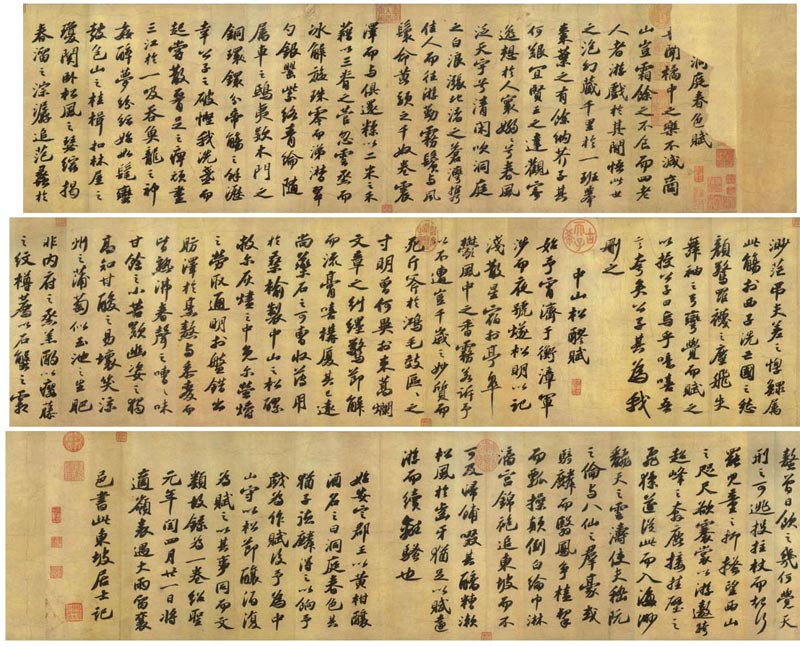 洞庭春色賦
吾聞橘中之樂不減商
山豈霜餘之不食而四老
人者游戲於其間悟此世
之泡幻藏千里於一班舉
棗葉之有餘納芥子其
何艱宜賢王之達觀寄
逸想於人寰嫋嫋兮春風
泛天宇兮清閑吹洞庭
之白浪漲北渚之蒼灣攜
佳人而往游勒霧鬢與風
鬟命黃頭之千奴卷震
澤而與俱還糅以二米之禾
藉以三脊之菅忽雲烝而
冰解旋珠零而涕潸翠
勺銀罌紫絡青綸隨
屬車之鴟夷款木門之
銅鐶分帝觴之餘瀝
幸公子之破慳我洗盞而
起嘗散腰足之痺頑盡
三江於一吸吞魚龍之神
姦醉夢紛紜始如髦蠻
鼓包山之桂楫扣林屋之
瓊關臥松風之瑟縮揭
春溜之淙潺追范蠡於
渺茫弔夫差之惸鰥屬
此觴於西子洗亡國之愁
顏驚羅襪之塵飛失
舞袖之弓彎覺而賦之
以授公子曰烏乎噫嘻吾
言夸矣公子其為我
刪之
中山松醪賦
始予宵濟於衡漳軍
涉而夜號燧松明以記
淺散星宿於亭皋
鬱風中之香霧若訴予
以不遭豈千歲之妙質而
死斤斧於鴻毛效區區之
寸明曾何異於束蒿爛
文章之糾纆驚節解
而流膏嘻構廈其已遠
尚藥石之可曹收薄用
於桑榆製中山之松醪
救爾灰燼之中免爾螢爝
之勞取通明於盤錯出
肪澤於烹熬與黍麥而
皆熟沸舂聲之嘈嘈味
甘餘之小苦歎幽姿之獨
高知甘酸之易壞笑涼
州之蒲萄似玉池之生肥
非內府之烝羔酌以癭藤
之紋樽薦以石蟹之霜
螯曾日飲之幾何覺天
刑之可逃投拄杖而起行
罷兒童之抑搔望西山
之咫尺欲褰裳以游遨跨
超峰之奔鹿接挂壁之
飛猱遂從此而入海渺
翻天之雲濤使夫嵇阮
之倫與八仙之群豪或
騎麟而翳鳳爭榼挈
而瓢操顛倒白綸巾淋
漓宮錦袍追東坡而不
可及歸餔歠其醨糟漱
松風於齒牙猶足以賦遠
游而續離騷也
始安定郡王以黃柑釀
酒名之曰洞庭春色其
猶子德麟得之以餉予
戲為作賦後予為中
山守以松節釀酒復
為賦之以其事同而文
類故錄為一卷紹聖
元年閏四月廿一日將
適嶺表遇大雨留襄
邑書此東坡居士記